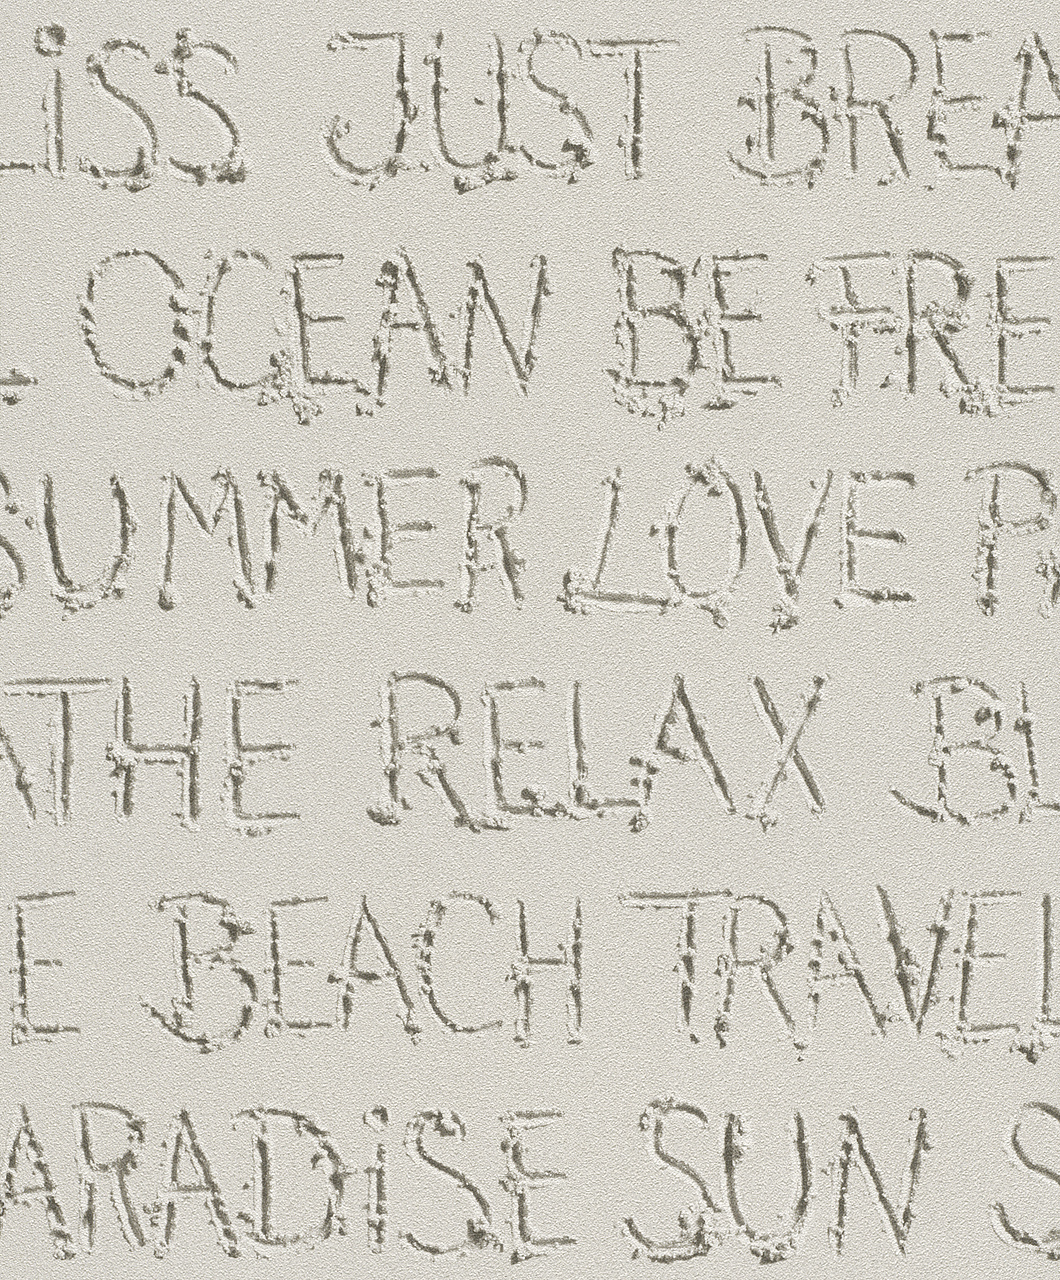 LiSS JUST BREA
L OCEAN BE FREE
SUMMER LOVE P
THE RELAX BL
E BEACH TRAVEL
ARADiSE SUN S